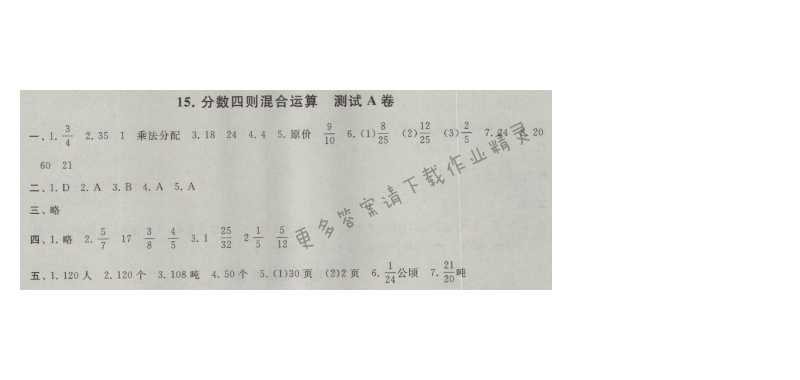 15. 分数四则混合运算 测试 A 卷
一、1. 3/4 2. 35 1 乘法分配 3. 18 24 4. 4 5. 原价 9/10 6. (1) 8/25 (2) 12/25 (3) 2/5 7. 24 8. 20
60 21
二、1. D 2. A 3. B 4. A 5. A
三、略
四、1. 略 2. 5/7 17 3/8 4/5 3. 1 25/32 2 1/5 5/12
五、1. 120 人 2. 120 个 3. 108 吨 4. 50 个 5. (1) 30 页 (2) 2 页 6. 1/24 公顷 7. 21/20 吨
更多答案请下载作业精灵